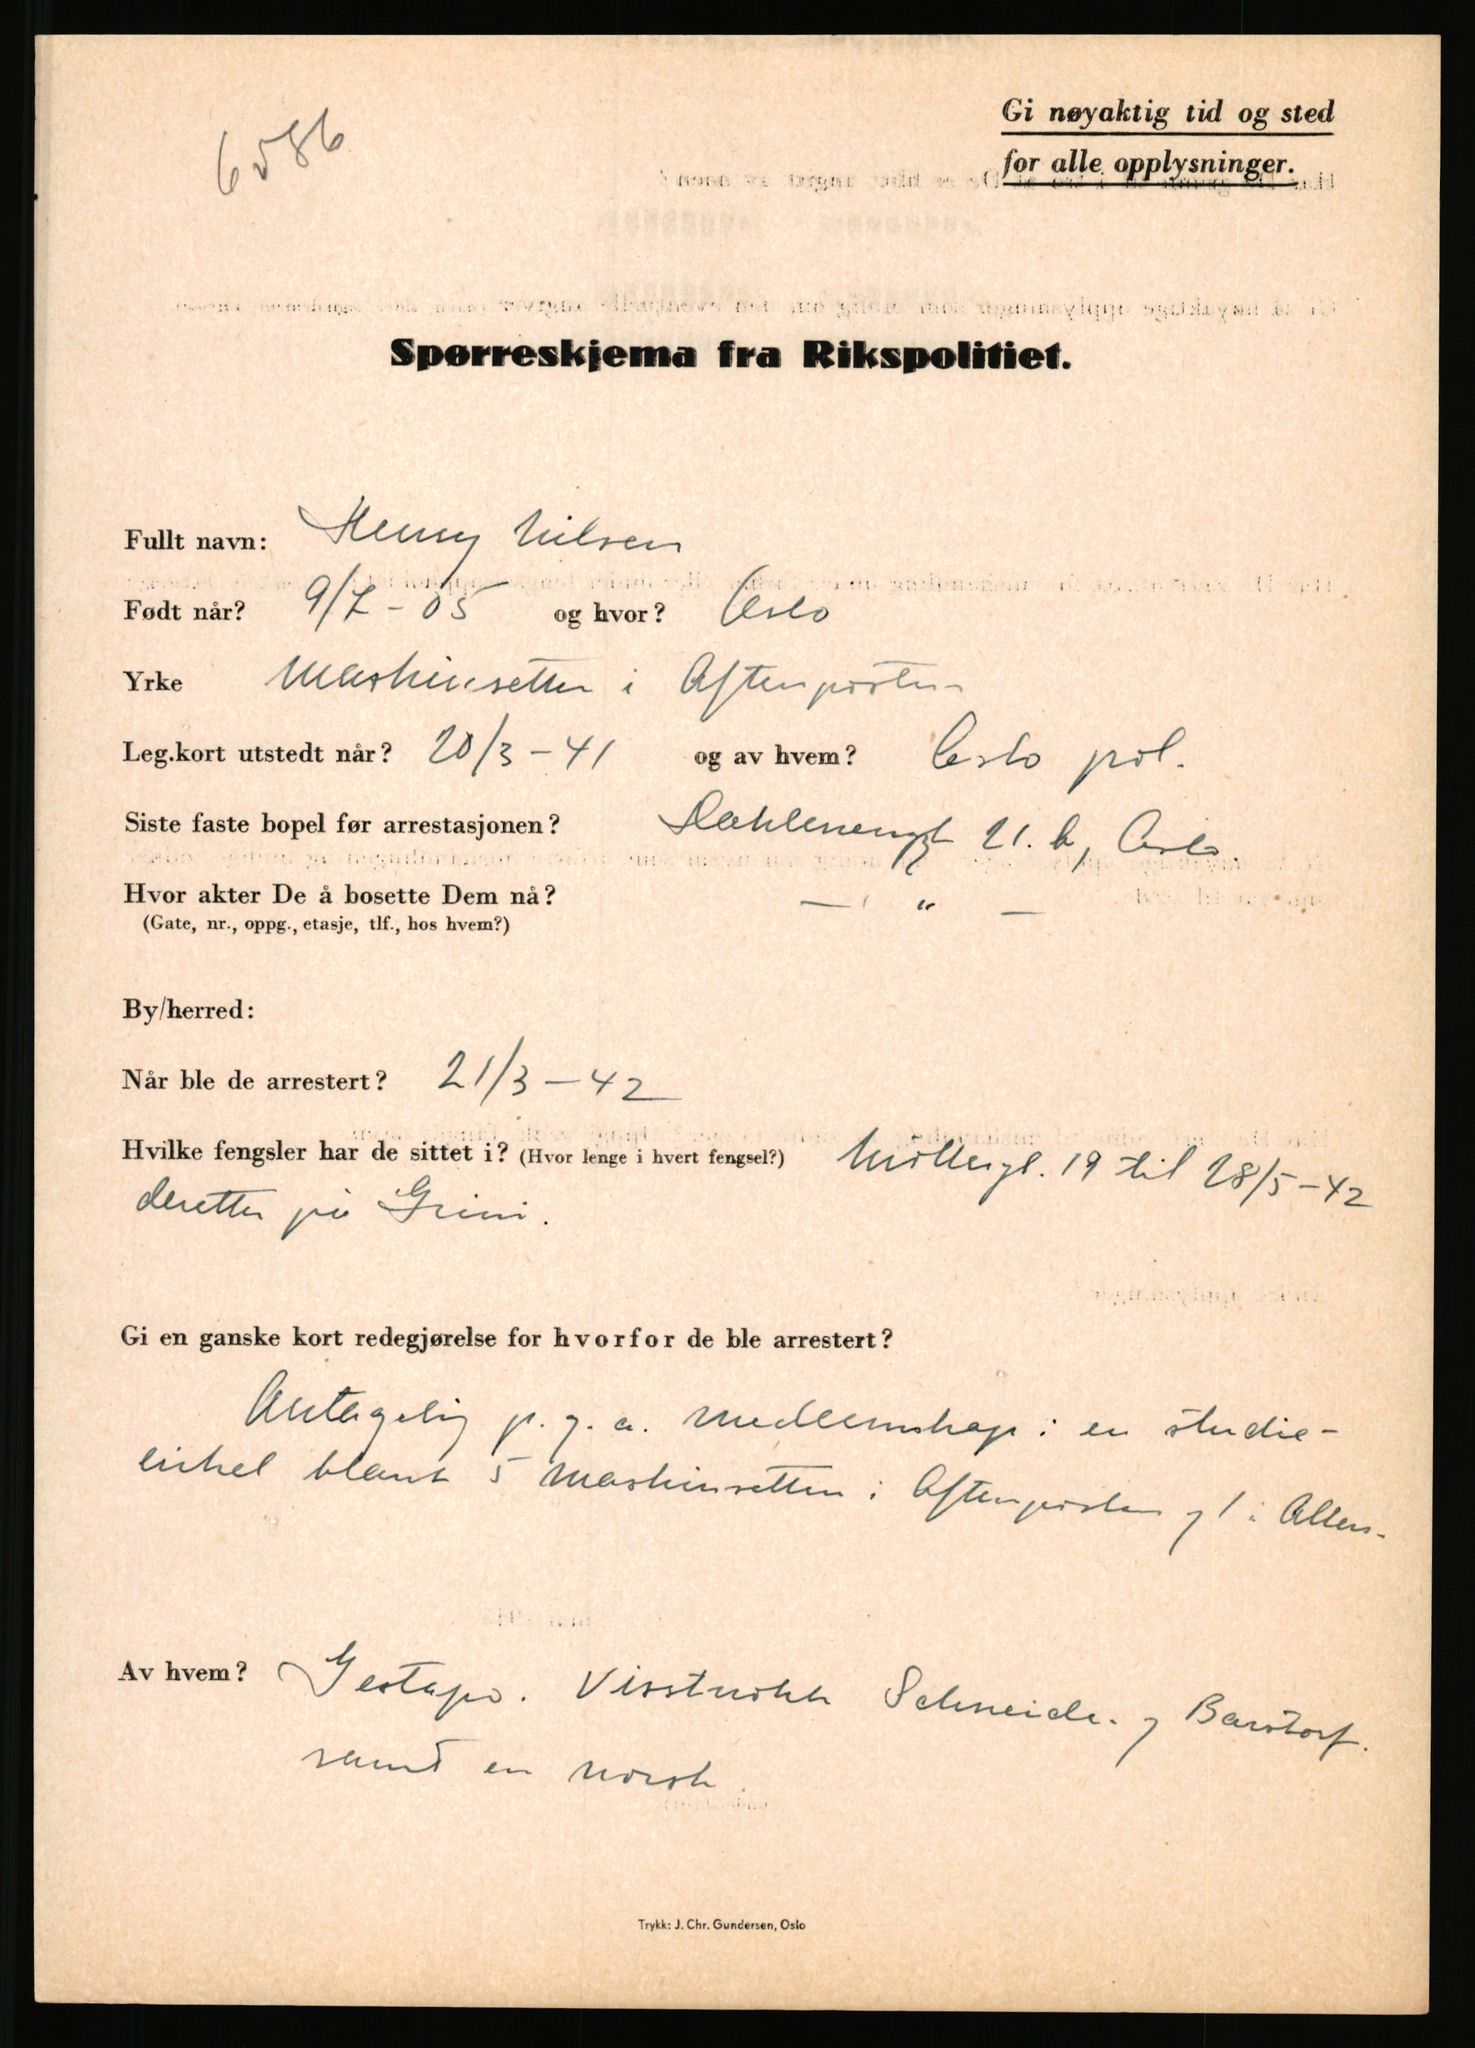 6586
Gi nøyaktig tid og sted
for alle opplysninger.
Spørreskjema fra Rikspolitiet.
Fullt navn: Henry Nilsen
Født når? 9/7 - 05 og hvor? Oslo
Yrke Maskinsetter i Aftenposten
Leg.kort utstedt når? 20/3 - 41 og av hvem? Oslo pol.
Siste faste bopel før arrestasjonen? 21. b, Oslo.
Hvor akter De å bosette Dem nå? — " —
(Gate, nr., oppg., etasje, tlf., hos hvem?)
By/herred:
Når ble de arrestert? 21/3 - 42
Hvilke fengsler har de sittet i? (Hvor lenge i hvert fengsel?) Møllergt. 19 til 28/5 - 42
deretter på Grini.
Gi en ganske kort redegjørelse for hvorfor de ble arrestert?
Antagelig p. g. a. medlemskap i en studie-
sirkel blant 5 maskinsettere i Aftenposten og 1 i Allers.
Av hvem? Gestapo. Visstnokk Schneider og Barstorf.
samt en norsk.
Trykk: J. Chr. Gundersen, Oslo